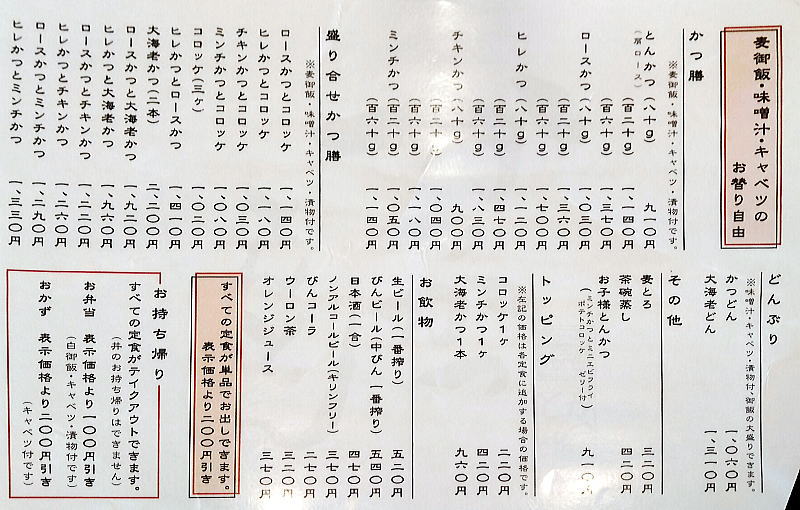 麦御飯・味噌汁・キャベツの
お替り自由
かつ膳
※麦御飯・味噌汁・キャベツ・漬物付です。
とんかつ（八十g） 九一〇円
（肩ロース）
（百二十g） 一、一四〇円
（百六十g） 一、三七〇円
ロースかつ（八十g） 一、〇三〇円
（百二十g） 一、三六〇円
（百六十g） 一、七〇〇円
ヒレかつ（八十g） 一、一〇〇円
（百二十g） 一、四七〇円
（百六十g） 一、八三〇円
チキンかつ（八十g） 九〇〇円
（百二十g） 一、〇四〇円
（百六十g） 一、二〇〇円
ミンチかつ（百二十g） 一、〇五〇円
（百六十g） 一、一四〇円
盛り合せかつ膳
※麦御飯・味噌汁・キャベツ・漬物付です。
ロースかつとコロッケ 一、一四〇円
ヒレかつとコロッケ 一、一八〇円
チキンかつとコロッケ 一、〇三〇円
ミンチかつとコロッケ 一、〇八〇円
コロッケ（三ヶ） 一、〇二〇円
ヒレかつとロースかつ 一、四一〇円
大海老かつ（二本） 二、二〇〇円
ロースかつと大海老かつ 一、九二〇円
ヒレかつと大海老かつ 一、九六〇円
ロースかつとチキンかつ 一、二二〇円
ヒレかつとチキンかつ 一、二六〇円
ロースかつとミンチかつ 一、二九〇円
ヒレかつとミンチかつ 一、三三〇円
どんぶり
※味噌汁・キャベツ・漬物付 御飯の大盛りできます。
かつどん 一、〇六〇円
大海老どん 一、三一〇円
その他
麦とろ 三二〇円
茶碗蒸し 四二〇円
お子様とんかつ 九一〇円
（ミンチかつとミニエビフライ
ポテトコロッケ ゼリー付）
トッピング
※左記の価格は各定食に追加する場合の価格です。
コロッケ１ヶ 二二〇円
ミンチかつ１ヶ 四二〇円
大海老かつ１本 九六〇円
お飲物
生ビール（一番搾り） 五二〇円
びんビール（中びん 一番搾り） 五四〇円
日本酒（一合） 四七〇円
ノンアルコールビール（キリンフリー） 三七〇円
びんコーラ 二七〇円
ウーロン茶 三二〇円
オレンジジュース 三七〇円
すべての定食が単品でお出しできます。
表示価格より二〇〇円引き
お持ち帰り
すべての定食がテイクアウトできます。
（丼のお持ち帰りはできません）
お弁当 表示価格より一〇〇円引き
（白御飯・キャベツ・漬物付です）
おかず 表示価格より二〇〇円引き
（キャベツ付です）